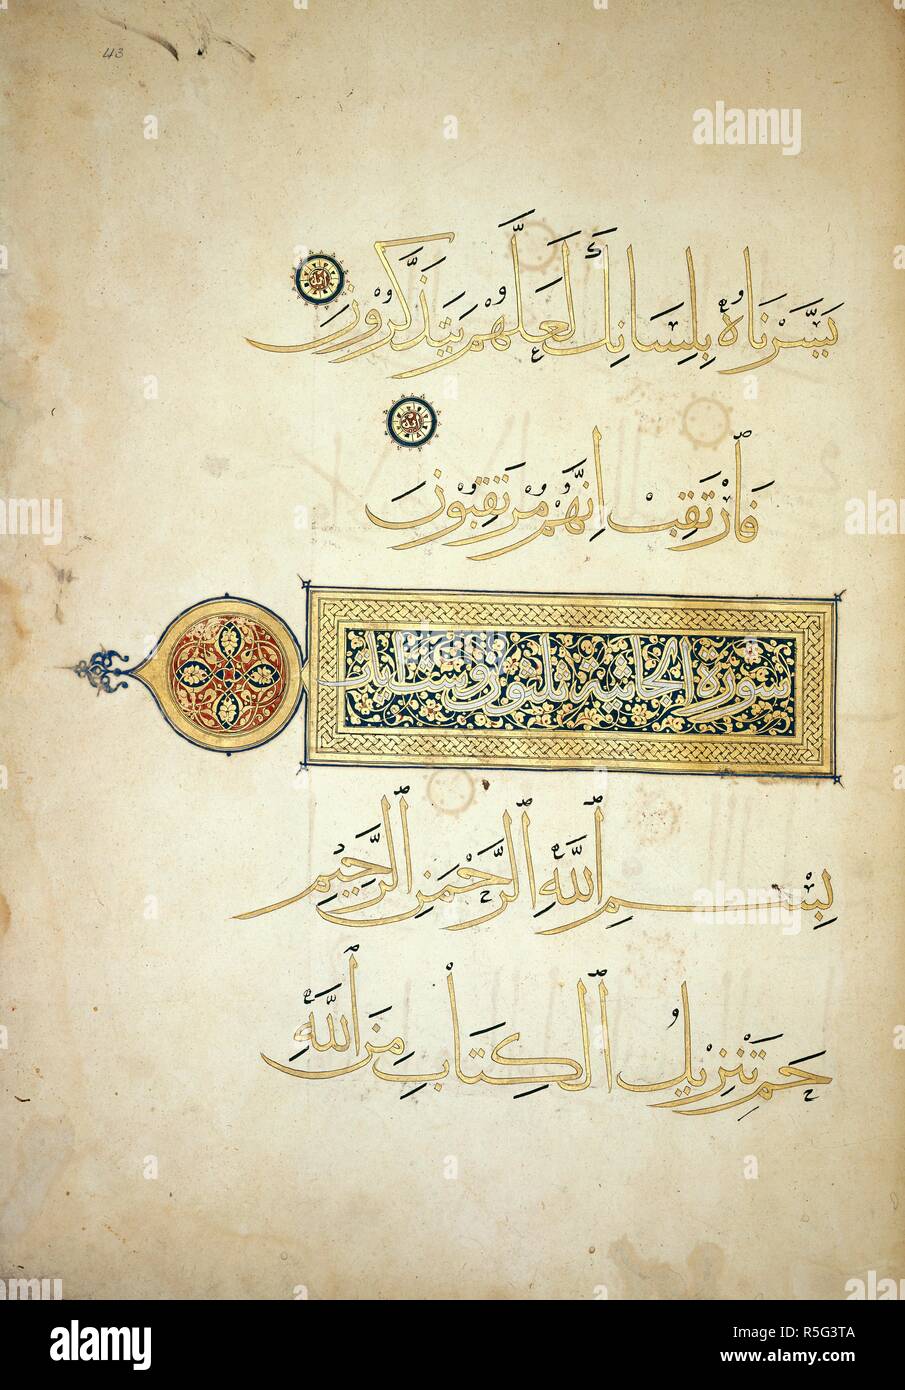 43
يَسَّرْنَاهُ بِلِسَانِكَ لَعَلَّهُمْ يَتَذَكَّرُونَ
فَارْتَقِبْ اِنَّهُمْ مُرْتَقِبُونَ
سورة الجاثية ثلثون وست ايات
بِسْمِ اللَّهِ الرَّحْمَنِ الرَّحِيمِ
حَم تَنْزِيلُ الْكِتَابِ مِنَ اللَّهِ
alamy
alamy
Image ID: R5G3TA
www.alamy.com